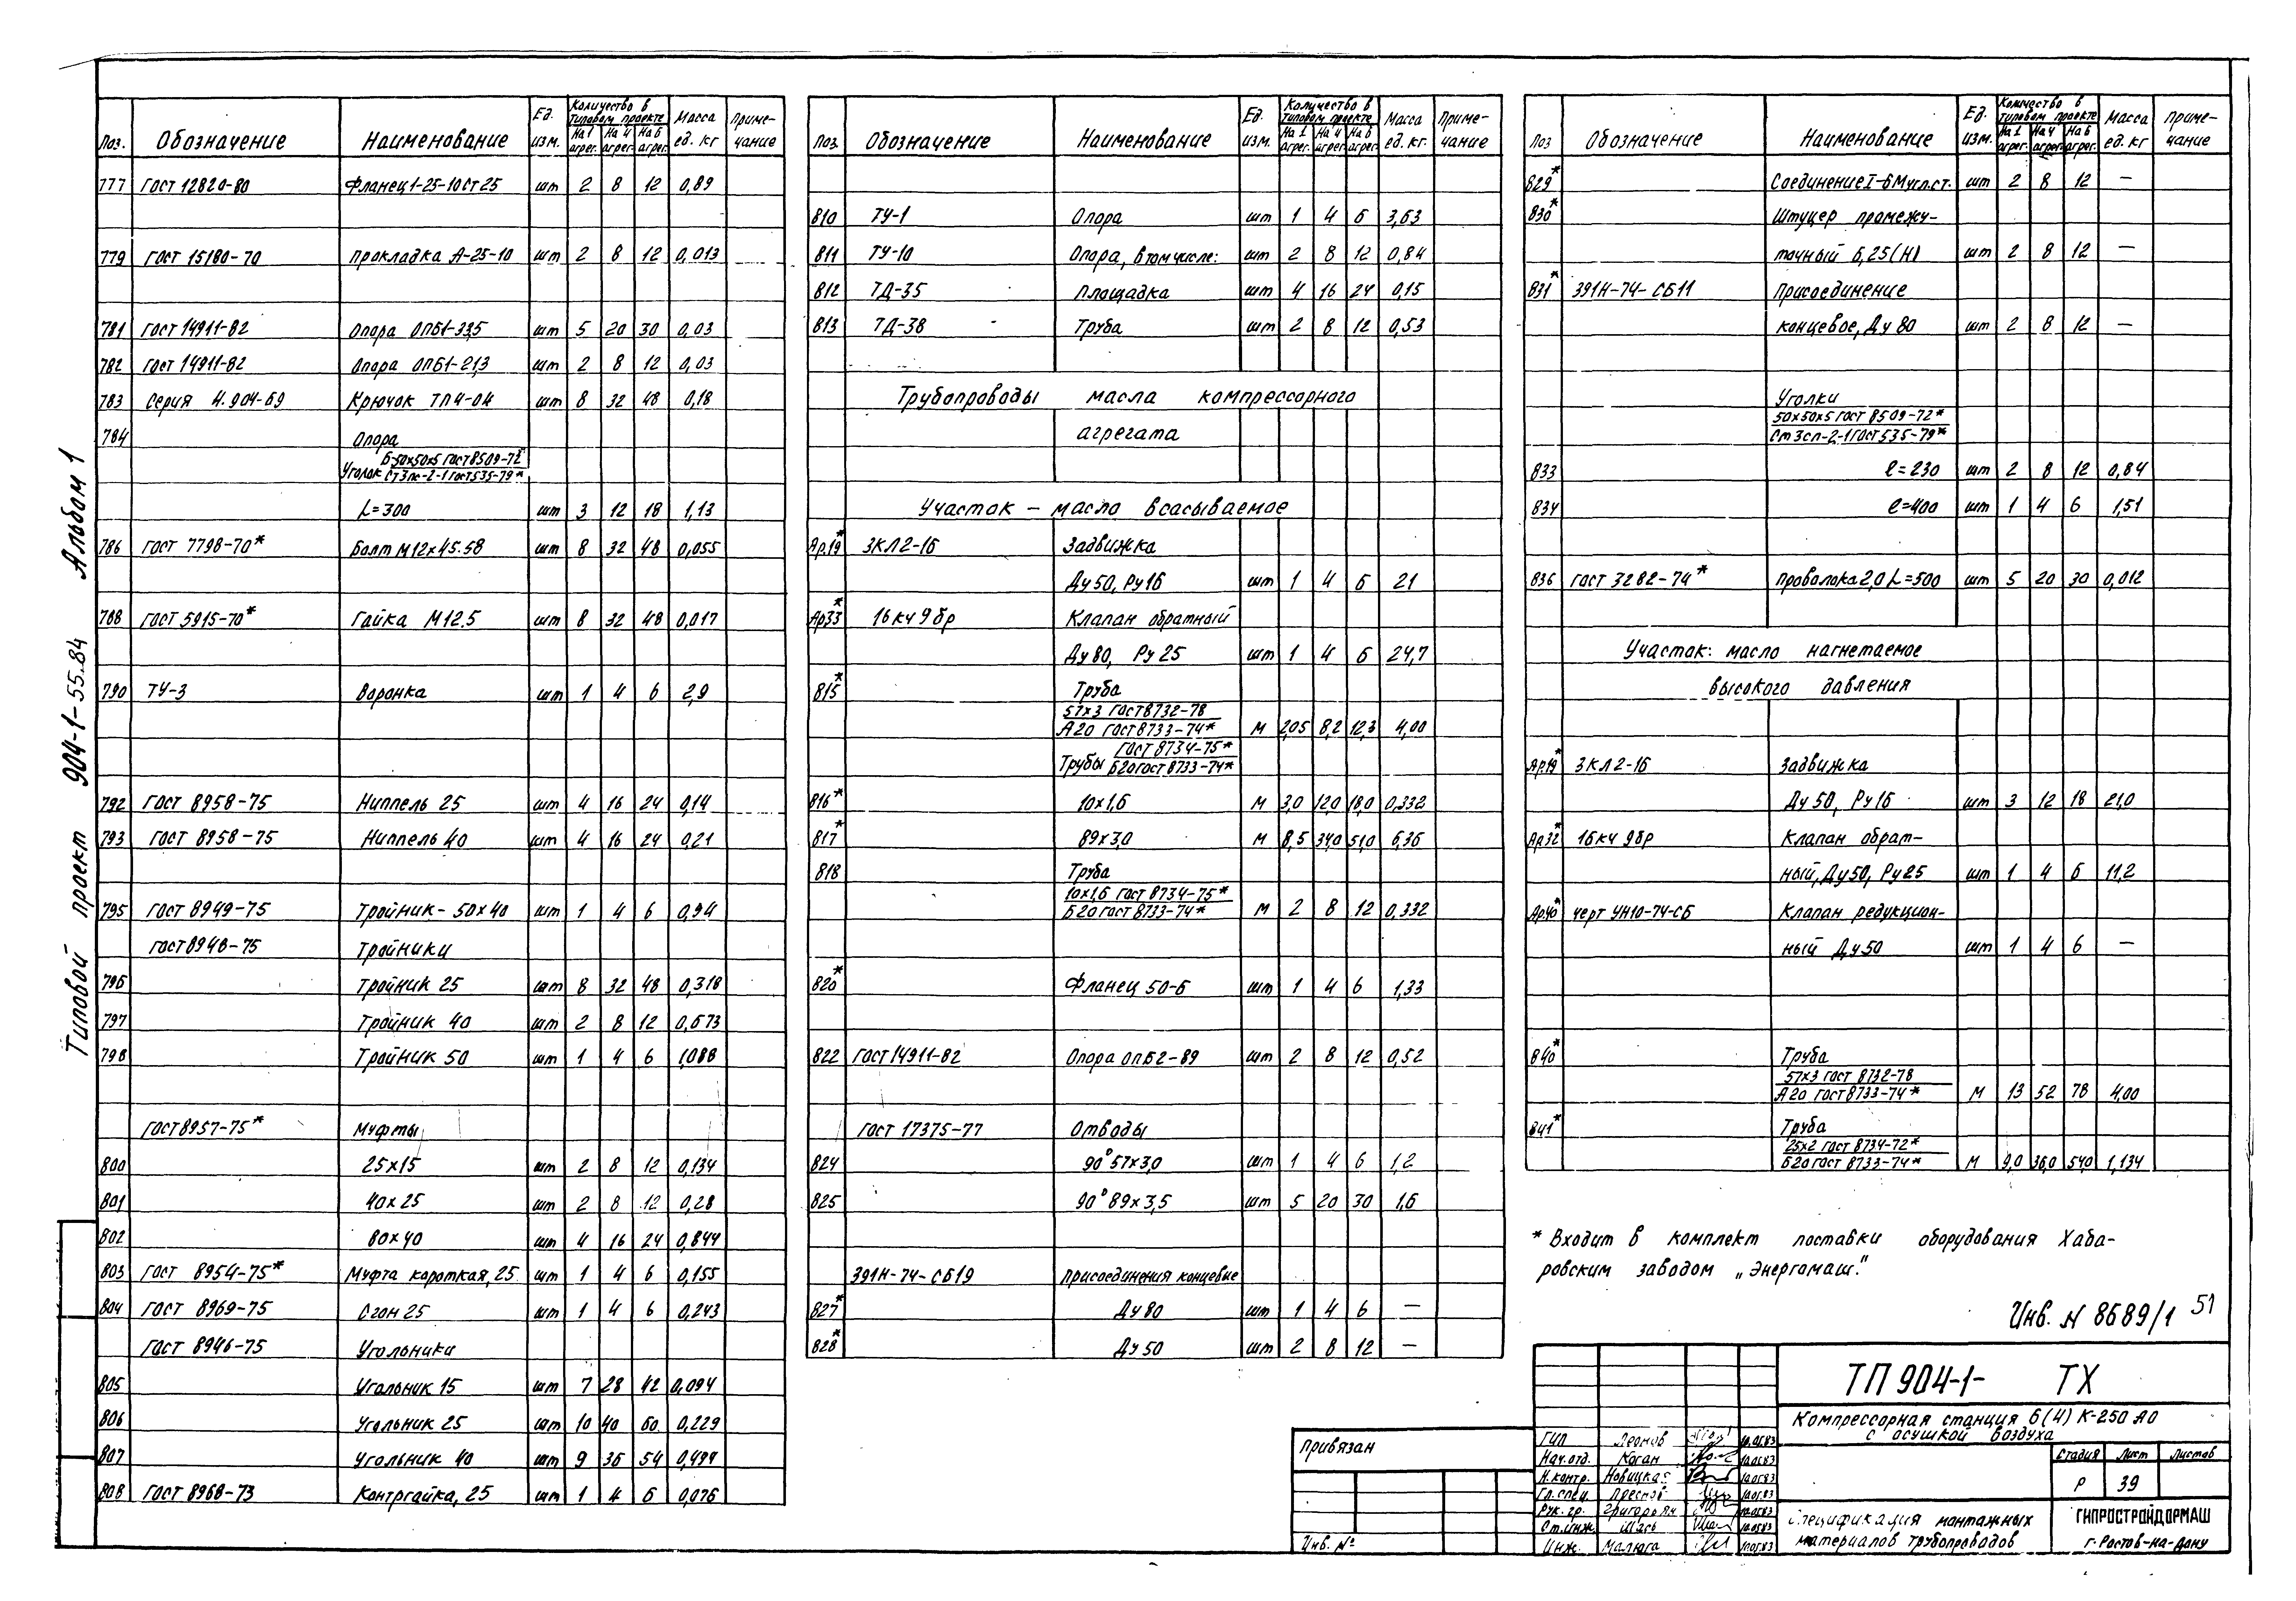 Типовой проект 904-1-55.84 Альбом 1
Поз. Обозначение Наименование Ед. изм. Количество в типовом проекте На 1 агрег. На 4 агрег. На 6 агрег. Масса ед. кг Приме-чание
777 ГОСТ 12820-80 Фланец 1-25-10 Ст 25 шт 2 8 12 0,89
779 ГОСТ 15180-70 Прокладка А-25-10 шт 2 8 12 0,013
781 ГОСТ 14911-82 Опора ОПБ1-33,5 шт 5 20 30 0,03
782 ГОСТ 14911-82 Опора ОПБ1-21,3 шт 2 8 12 0,03
783 Серия 4.904-69 Крючок ТП4-04 шт 8 32 48 0,18
784 Опора
Уголок Б-50х50х5 ГОСТ 8509-72
Ст3пс-2-1 ГОСТ 535-79*
L=300 шт 3 12 18 1,13
786 ГОСТ 7798-70* Болт М12х45.58 шт 8 32 48 0,055
788 ГОСТ 5915-70* Гайка М12.5 шт 8 32 48 0,017
790 ТУ-3 Воронка шт 1 4 6 2,9
792 ГОСТ 8958-75 Ниппель 25 шт 4 16 24 0,14
793 ГОСТ 8958-75 Ниппель 40 шт 4 16 24 0,21
795 ГОСТ 8949-75 Тройник-50х40 шт 1 4 6 0,94
ГОСТ 8948-75 Тройники
796 Тройник 25 шт 8 32 48 0,318
797 Тройник 40 шт 2 8 12 0,673
798 Тройник 50 шт 1 4 6 1,088
ГОСТ 8957-75* Муфты
800 25х15 шт 2 8 12 0,134
801 40х25 шт 2 8 12 0,28
802 80х40 шт 4 16 24 0,844
803 ГОСТ 8954-75* Муфта короткая, 25 шт 1 4 6 0,155
804 ГОСТ 8969-75 Сгон 25 шт 1 4 6 0,243
ГОСТ 8946-75 Угольники
805 Угольник 15 шт 7 28 42 0,094
806 Угольник 25 шт 10 40 60 0,229
807 Угольник 40 шт 9 36 54 0,499
808 ГОСТ 8968-73 Контргайка, 25 шт 1 4 6 0,076
Поз. Обозначение Наименование Ед. изм. Количество в типовом проекте На 1 агрег. На 4 агрег. На 6 агрег. Масса ед. кг. Приме-чание
810 ТУ-1 Опора шт 1 4 6 3,63
811 ТУ-10 Опора, в том числе: шт 2 8 12 0,84
812 ТД-35 Площадка шт 4 16 24 0,15
813 ТД-38 Труба шт 2 8 12 0,53
Трубопроводы масла компрессорного
агрегата
Участок – масло всасываемое
Ар.19* 3КЛ2-16 Задвижка
Ду 50, Ру 16 шт 1 4 6 21
Ар33* 16кч 9бр Клапан обратный
Ду 80, Ру 25 шт 1 4 6 24,7
815* Труба
57х3 ГОСТ 8732-78
А20 ГОСТ 8733-74* М 2,05 8,2 12,3 4,00
Трубы ГОСТ 8734-75*
Б20 ГОСТ 8733-74*
816* 10х1,6 М 3,0 12,0 18,0 0,332
817* 89х3,0 М 8,5 34,0 51,0 6,36
818 Труба
10х1,6 ГОСТ 8734-75*
Б20 ГОСТ 8733-74* М 2 8 12 0,332
820* Фланец 50-6 шт 1 4 6 1,33
822 ГОСТ 14911-82 Опора ОПБ2-89 шт 2 8 12 0,52
ГОСТ 17375-77 Отводы
824 90° 57х3,0 шт 1 4 6 1,2
825 90° 89х3,5 шт 5 20 30 1,6
391Н-74-СБ19 Присоединения концевые
827* Ду 80 шт 1 4 6 —
828* Ду 50 шт 2 8 12 —
Поз Обозначение Наименование Ед. изм. Количество в типовом проекте На 1 агрег. На 4 агрег. На 6 агрег. Масса ед. кг Приме-чание
829* Соединение I-6 М угл.ст. шт 2 8 12 —
830* Штуцер промежу-
точный 6,25(Н) шт 2 8 12 —
831* 391Н-74-СБ11 Присоединение
концевое, Ду 80 шт 2 8 12 —
Уголки
50х50х5 ГОСТ 8509-72*
Ст 3сп-2-1 ГОСТ 535-79*
833 ℓ=230 шт 2 8 12 0,84
834 ℓ=400 шт 1 4 6 1,51
836 ГОСТ 3282-74* Проволока 2,0 L=500 шт 5 20 30 0,012
Участок: масло нагнетаемое
высокого давления
Ар.19* 3КЛ2-16 Задвижка
Ду 50, Ру 16 шт 3 12 18 21,0
Ар32* 16кч 9бр Клапан обрат-
ный, Ду 50, Ру 25 шт 1 4 6 11,2
Ар40* черт УН10-74-СБ Клапан редукцион-
ный Ду 50 шт 1 4 6 —
840* Труба
57х3 ГОСТ 8732-78
А20 ГОСТ 8733-74* М 13 52 78 4,00
841* Труба
25х2 ГОСТ 8734-72*
Б20 ГОСТ 8733-74* М 9,0 36,0 54,0 1,134
* Входит в комплект поставки оборудования Хаба-
ровским заводом „Энергомаш."
Инв. N 8689/1 51
Привязан
Инв. №
ГИП Леонов 10.05.83
Нач.отд. Коган 10.05.83
Н.контр. Новицкая 10.05.83
Гл.спец. Преснов 10.05.83
Рук. гр. Григорьян 10.05.83
Ст.инж. Шась 10.05.83
Инж. Малюга 10.05.83
ТП 904-1- ТХ
Компрессорная станция 6(4) К-250 АО
с осушкой воздуха
Стадия Лист Листов
Р 39
Спецификация монтажных
материалов трубопроводов
ГИПРОСТРОЙДОРМАШ
г. Ростов-на-Дону